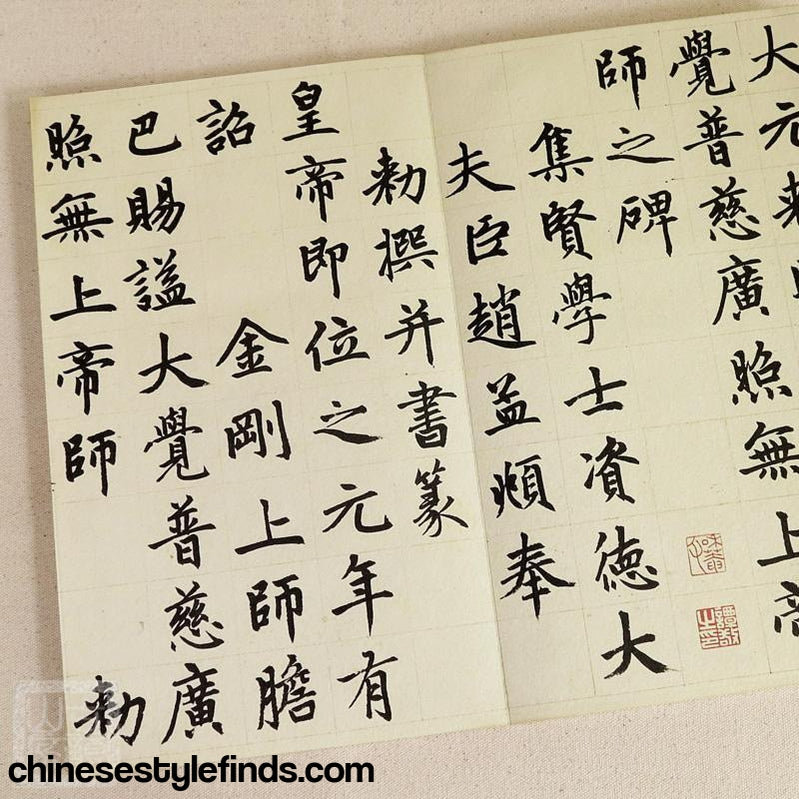 大元敕
覺普慈廣照無上帝
師之碑
集賢學士資德大
夫臣趙孟頫奉
敕撰并書篆
皇帝即位之元年有
詔金剛上師膽
巴賜謚大覺普慈廣
照無上帝師敕
chinesestylefinds.com